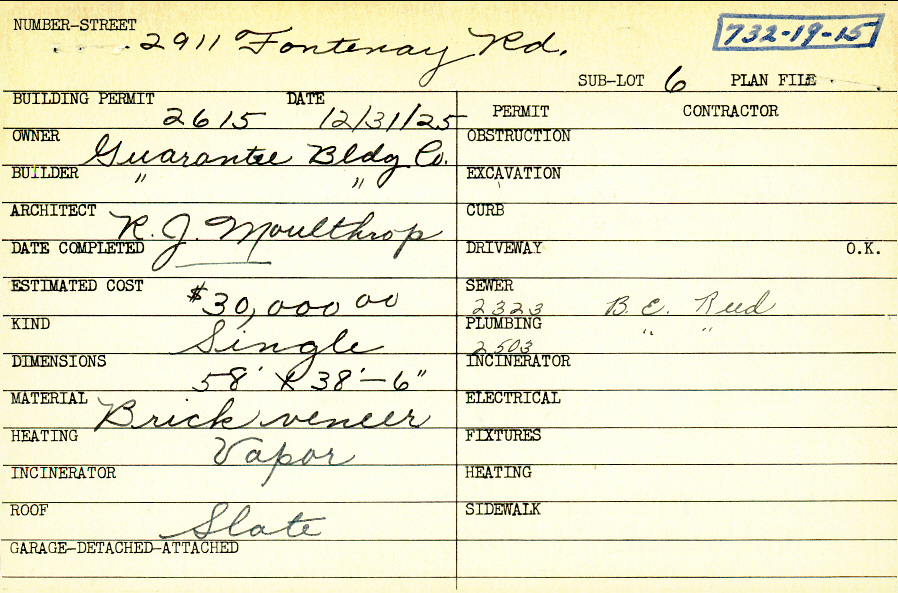 NUMBER-STREET 2911 Fontenay Rd. 732-19-15
SUB-LOT 6 PLAN FILE
BUILDING PERMIT 2615 DATE 12/31/25
OWNER Guarantee Bldg Co.
BUILDER " "
ARCHITECT R. J. Moulthrop
DATE COMPLETED
ESTIMATED COST $30,000 00
KIND Single
DIMENSIONS 58' x 38'-6"
MATERIAL Brick veneer
HEATING Vapor
INCINERATOR
ROOF Slate
GARAGE-DETACHED-ATTACHED
PERMIT CONTRACTOR
OBSTRUCTION
EXCAVATION
CURB
DRIVEWAY O.K.
SEWER
2323 B. E. Reed
PLUMBING " "
2503
INCINERATOR
ELECTRICAL
FIXTURES
HEATING
SIDEWALK